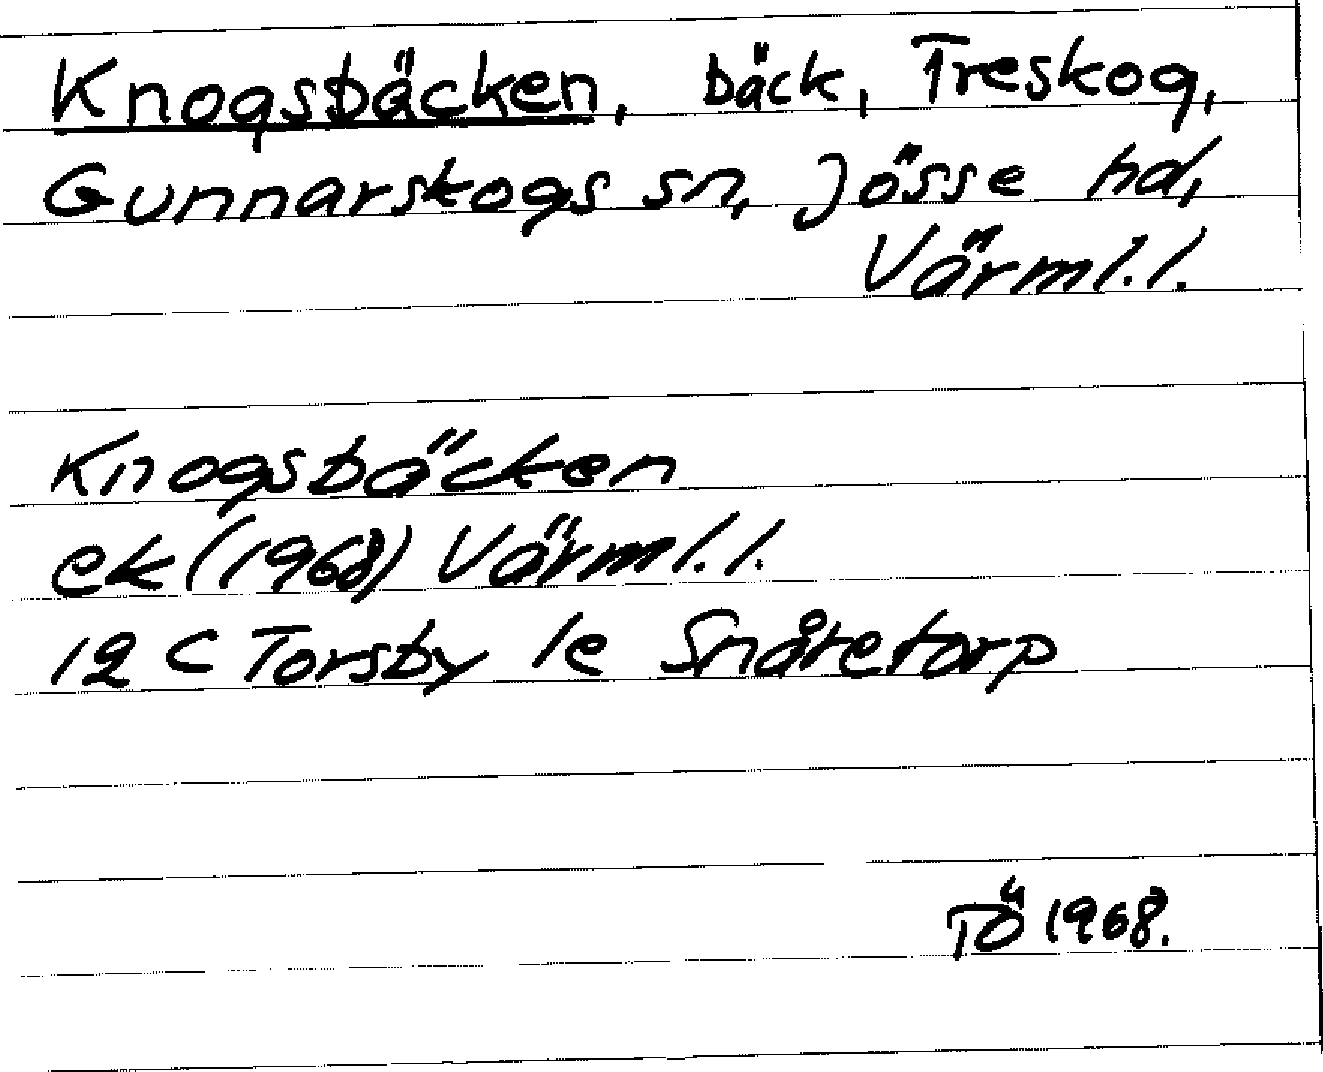 Knogsbäcken, bäck, Treskog,
Gunnarskogs sn, Jösse hd,
Värml.l.
Knogsbäcken
ek (1968) Värml.l.
12 C Torsby 1e Snåretorp
TÖ 1968.